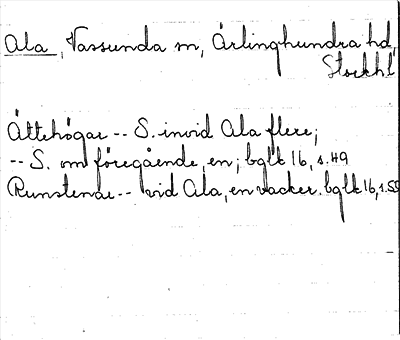 Ala, Vassunda sn, Ärlinghundra hd,
Stockhl
Ättehögar -- S. invid Ala flere;
-- S. om föregående, en; bglk 16, s. 49
Runstenar -- vid Ala, en vacker. bglk 16, s. 50